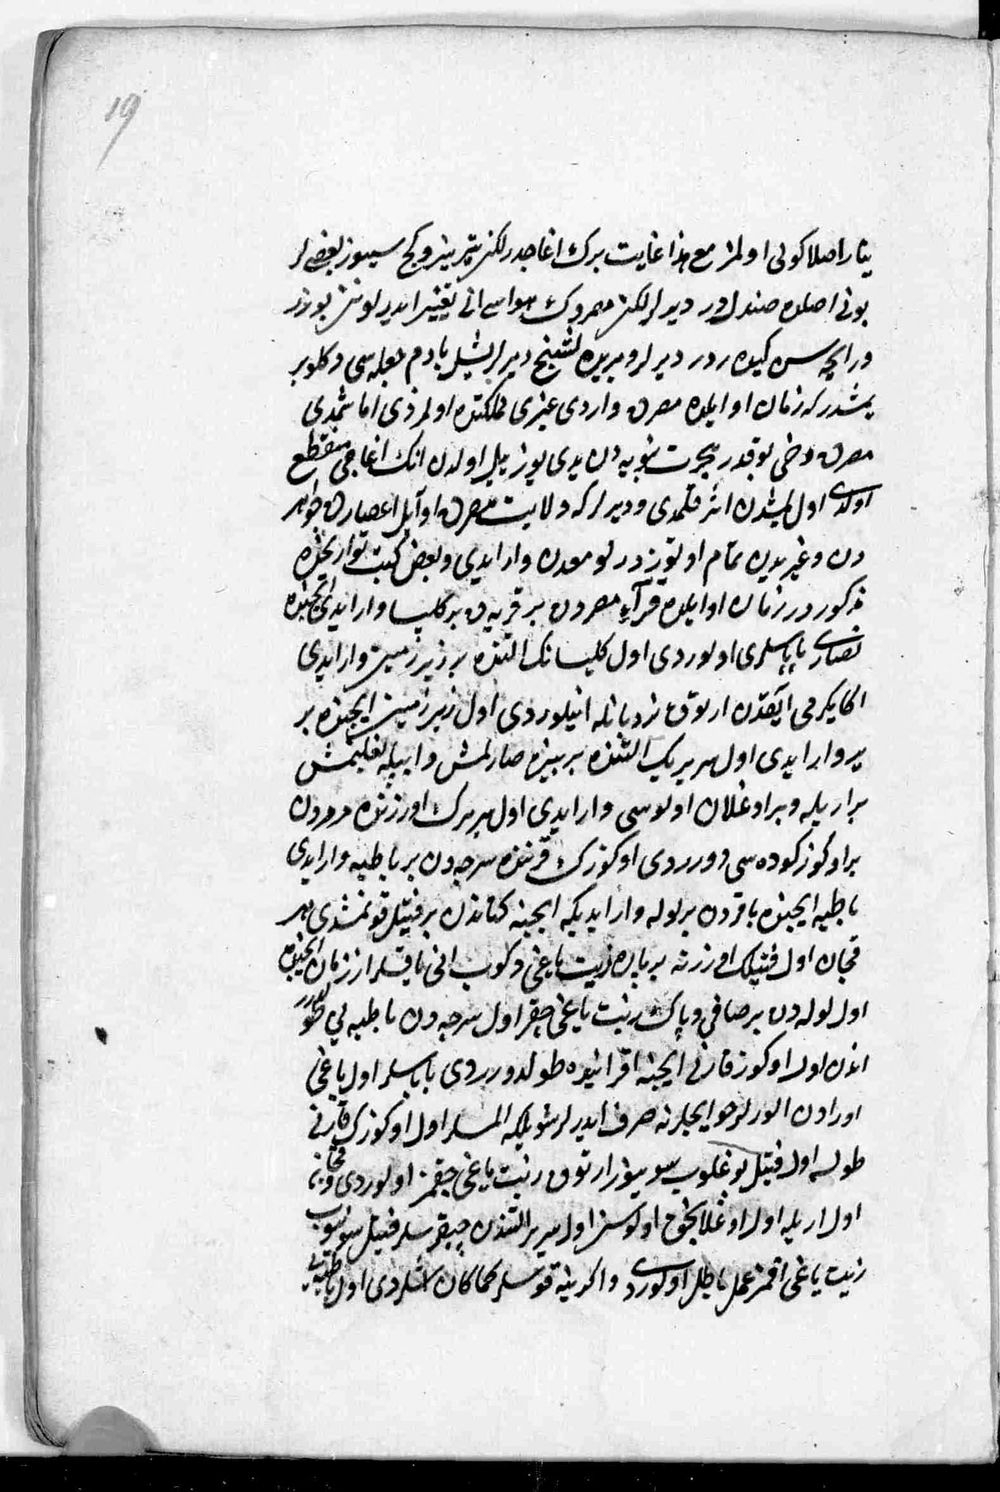 19
ینار اصلا کولی اولمز مع هذا غایت برك اغاجدر لکن تیز ینر و کچ سوینر بعضلر
بونی اصلده صندلدر دیرلر لکن مصروك هواسی انی تغییر ایدر لونن بوزر
و رایحه سن کیده رر دیرلر و بریده لشبخ دیرلر یشیل بادم جمله سی و کلوبر
یمشدر که زمان اوایلده مصرده واردی غیری مملکتده اولمزدی اما شمدی
مصرده دخی یوقدر هجرت نبویه دن یدی یوز ییل اولدن انك اغاجی منقطع
اولدی اول یمشدن اثر قلمدی و دیرلر که ولایت مصرده اوایل اعصارده جواهر
دن و غیریدن تمام اوتوز درلو معدن وار ایدی و بعض کتب تواریخده
مذکوردر زمان اوایلده قرآء مصردن بر قریه ده بر کلیسا وار ایدی ایچنده
نصاری پاپاسلری اولوردی اول کلیسانك التنده بر زیر زمین وار ایدی
اکا یکرمی ایقدن ارتوق نردبانله انیلوردی اول زیر زمین ایچنده بر
سریر وار ایدی اول سریرك التنده بر بیزه صارلمش و ایپیله بغلنمش
بر اریله و بر اوغلان اولوسی وار ایدی اول سریرك اوزرنده مرمردن
بر اوکوز کوده سی دورردی اوکوزك قرننده سرچه دن بر باطیه وار ایدی
باطیه ایچنده باقردن بر لوله وار ایدیکه ایچنه کتاندن بر فتیل قونمشدی هر
قچان اول فتیلك اوزرنه بر پاره زیت یاغی دکوب انی یاقسلر از زمان ایچنده
اول لوله دن بر صافی و پاك زیت یاغی چقر اول سرچه دن باطیه یی طولدرر
اندن اول اوکوز قارنی ایچنه اقر انیده طولدورردی پاپاسلر اول یاغی
اورادن الورلر حوایجلرنه صرف ایدرلر شویلکه المسلر اول اوکوزك قارنی
طولسه اول فتیل بوغلوب سوینر ارتوق زیت یاغی چقمز اولوردی و قچانم
اول اریله اول اوغلانجغك اولوسن اول سریر التندن چیقرسلر فتیل سوینوب
زیت یاغی اقمز عمل باطل اولوردی و اکر ینه قوسلر کماکان اشلردی اول باطیه یی